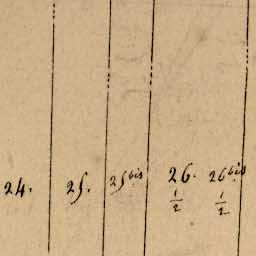 24. 25. 25 bis 26. 26 bis
1/2 1/2